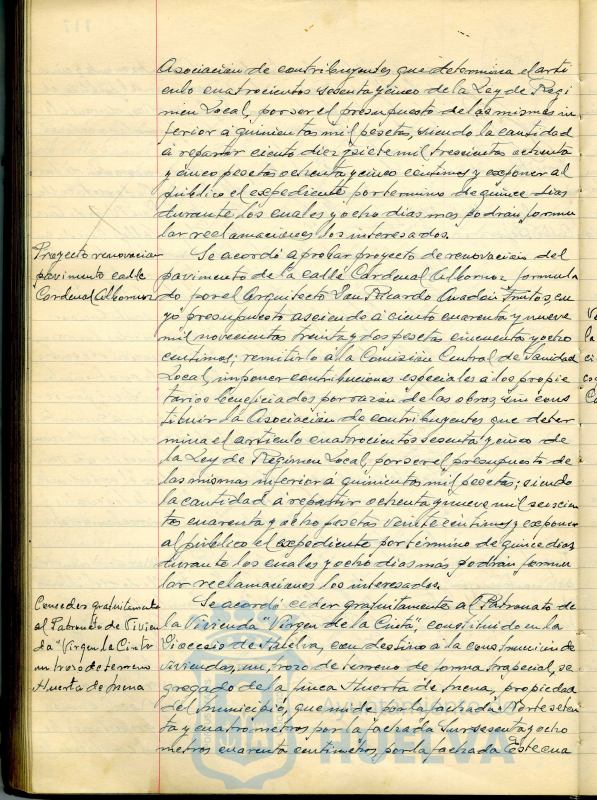 Asociacion de contribuyentes que determina el arti
culo cuatrocientos sesenta y cinco de la Ley de Regi
men Local, por ser el presupuesto de las mismas in
ferior á quinientas mil pesetas, siendo la cantidad
á repartir ciento diez y siete mil trescientas ochenta
y cinco pesetas ochenta y cinco centimos y exponer al
público el expediente por termino de quince dias
durante los cuales y ocho dias mas podrán formu
lar reclamaciones los interesados.
Proyecto renovacion
pavimento calle
Cardenal Albornoz
Se acordó aprobar proyecto de renovacion del
pavimento de la calle Cardenal Albornoz formula
do por el Arquitecto Don Ricardo Anadón Frutos, cu
yó presupuesto asciende á ciento cuarenta y nueve
mil novecientas treinta y dos pesetas cincuenta y ocho
centimos; remitirlo a la Comisión Central de Sanidad
Local, imponer contribuciones especiales á los propie
tarios beneficiados por razón de las obras, sin cons
tibuir la Asociación de contribuyentes que deter
mina el articulo cuatrocientos sesenta y cinco de
la Ley de Regimen Local, por ser el presupuesto de
las mismas inferior a quinientas mil pesetas; siendo
la cantidad á repartir ochenta y nueve mil seiscien
tas cuarenta y ocho pesetas veinte centimos y exponer
al público el expediente por término de quince dias
durante los cuales y ocho dias más podrán formu
lar reclamaciones los interesados.
Conceder gratuitamente
al Patronato de Vivien
da "Virgen la Cinta"
un trozo de terreno
Huerta de Mena
Se acordó ceder gratuitamente al Patronato de
la Vivienda "Virgen de la Cinta" constituido en la
Diocesis de Huelva, con destino a la construccion de
viviendas, un trozo de terreno de forma trapecial, se
gregado de la finca Huerta de Mena, propiedad
del municipio, que mide por la fachada Norte seten
ta y cuatro metros por la fachada Sur sesenta y ocho
metros cuarenta centimetros, por la fachada Este cua
HUELVA